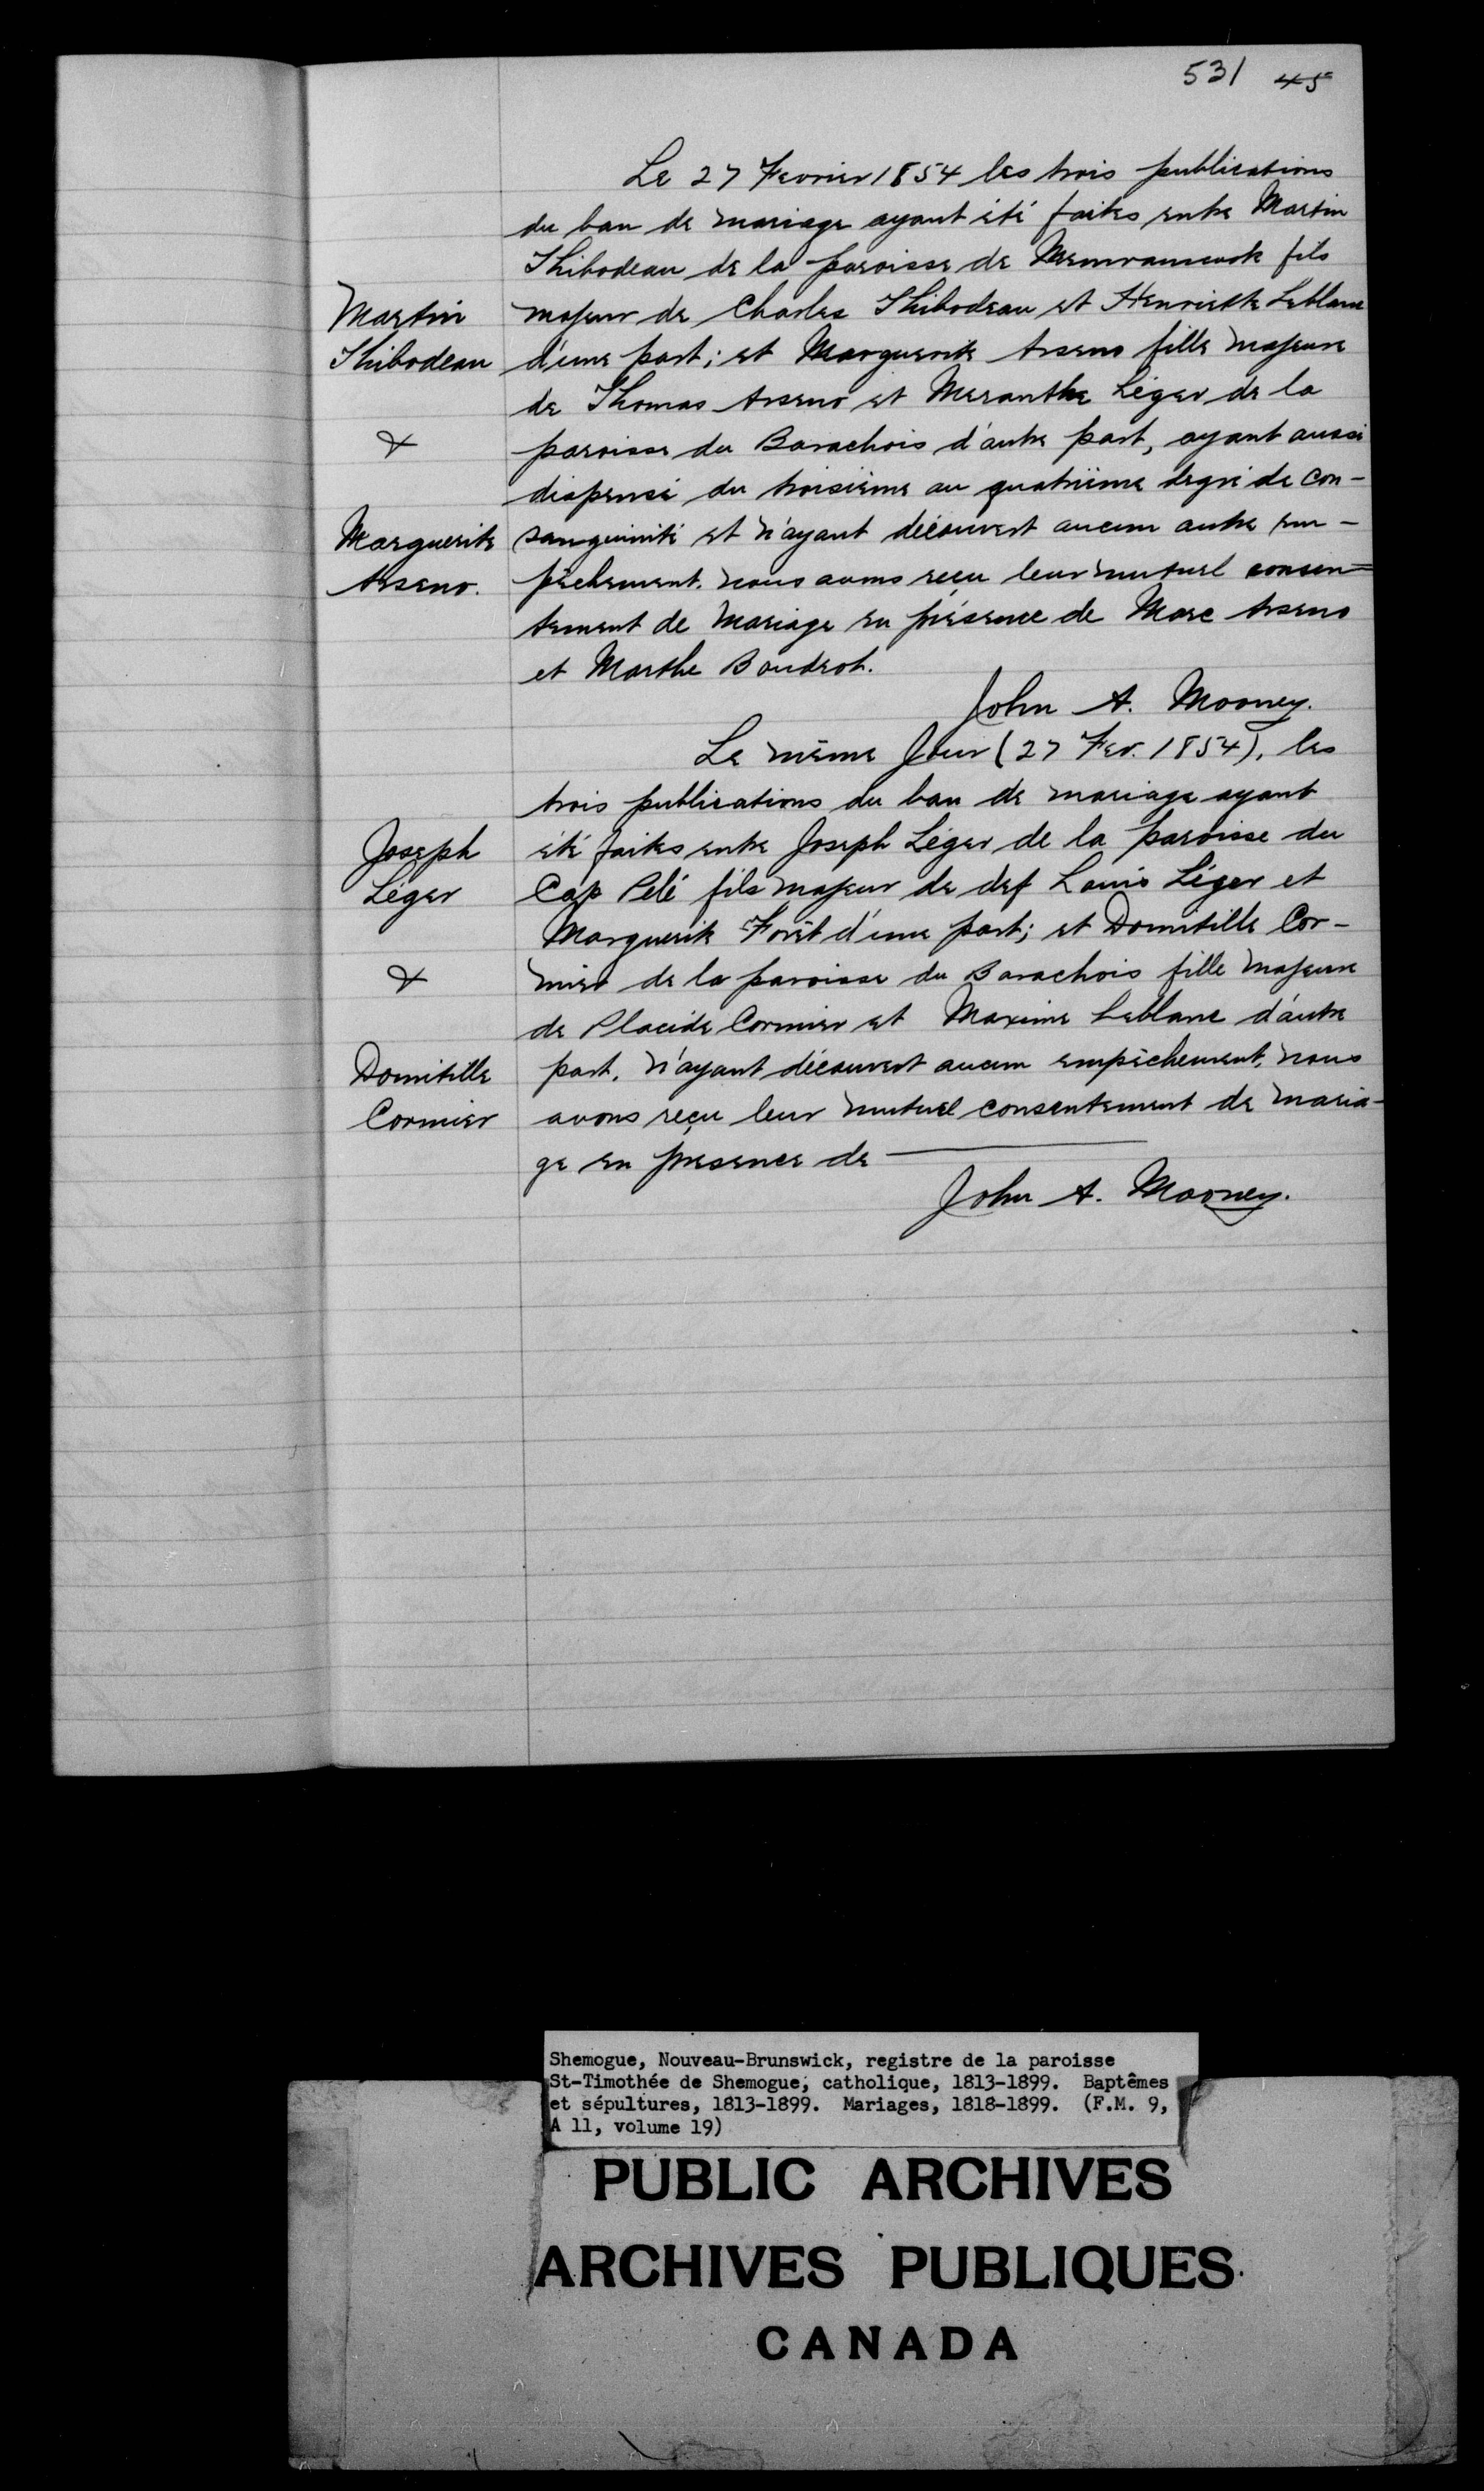 531 45
Le 27 Fevrier 1854 les trois publications
du ban de mariage ayant été faites entre Martin
Thibodeau de la paroisse de Memramcook fils
Martin
Thibodeau
&
Marguerite
Arseno.
majeur de Charles Thibodeau et Henriette Leblanc
d'une part; et Marguerite Arseno fille majeure
de Thomas Arseno et Meranthe Léger de la
paroisse du Barachois d'autre part, ayant aussi
dispensé du troisième au quatrième degré de con-
sanguinité et n'ayant découvert aucun autre em-
pêchement. nous avons reçu leur mutuel consen=
tement de mariage en présence de Marc Arseno
et Marthe Boudrot.
John A. Mooney.
Le même Jour (27 Fev. 1854), les
trois publications du ban de mariage ayant
Joseph
Léger
&
Domitille
Cormier
été faites entre Joseph Léger de la paroisse du
Cap Pelé fils majeur de def Louis Léger et
Marguerite Forêt d'une part; et Domitille Cor-
mier de la paroisse du Barachois fille majeure
de Placide Cormier et Maxime Leblanc d'autre
part. n'ayant découvert aucun empêchement, nous
avons reçu leur mutuel consentement de maria-
ge en presence de —
John A. Mooney.
Shemogue, Nouveau-Brunswick, registre de la paroisse
St-Timothée de Shemogue, catholique, 1813-1899. Baptêmes
et sépultures, 1813-1899. Mariages, 1818-1899. (F.M. 9,
A 11, volume 19)
PUBLIC ARCHIVES
ARCHIVES PUBLIQUES
CANADA